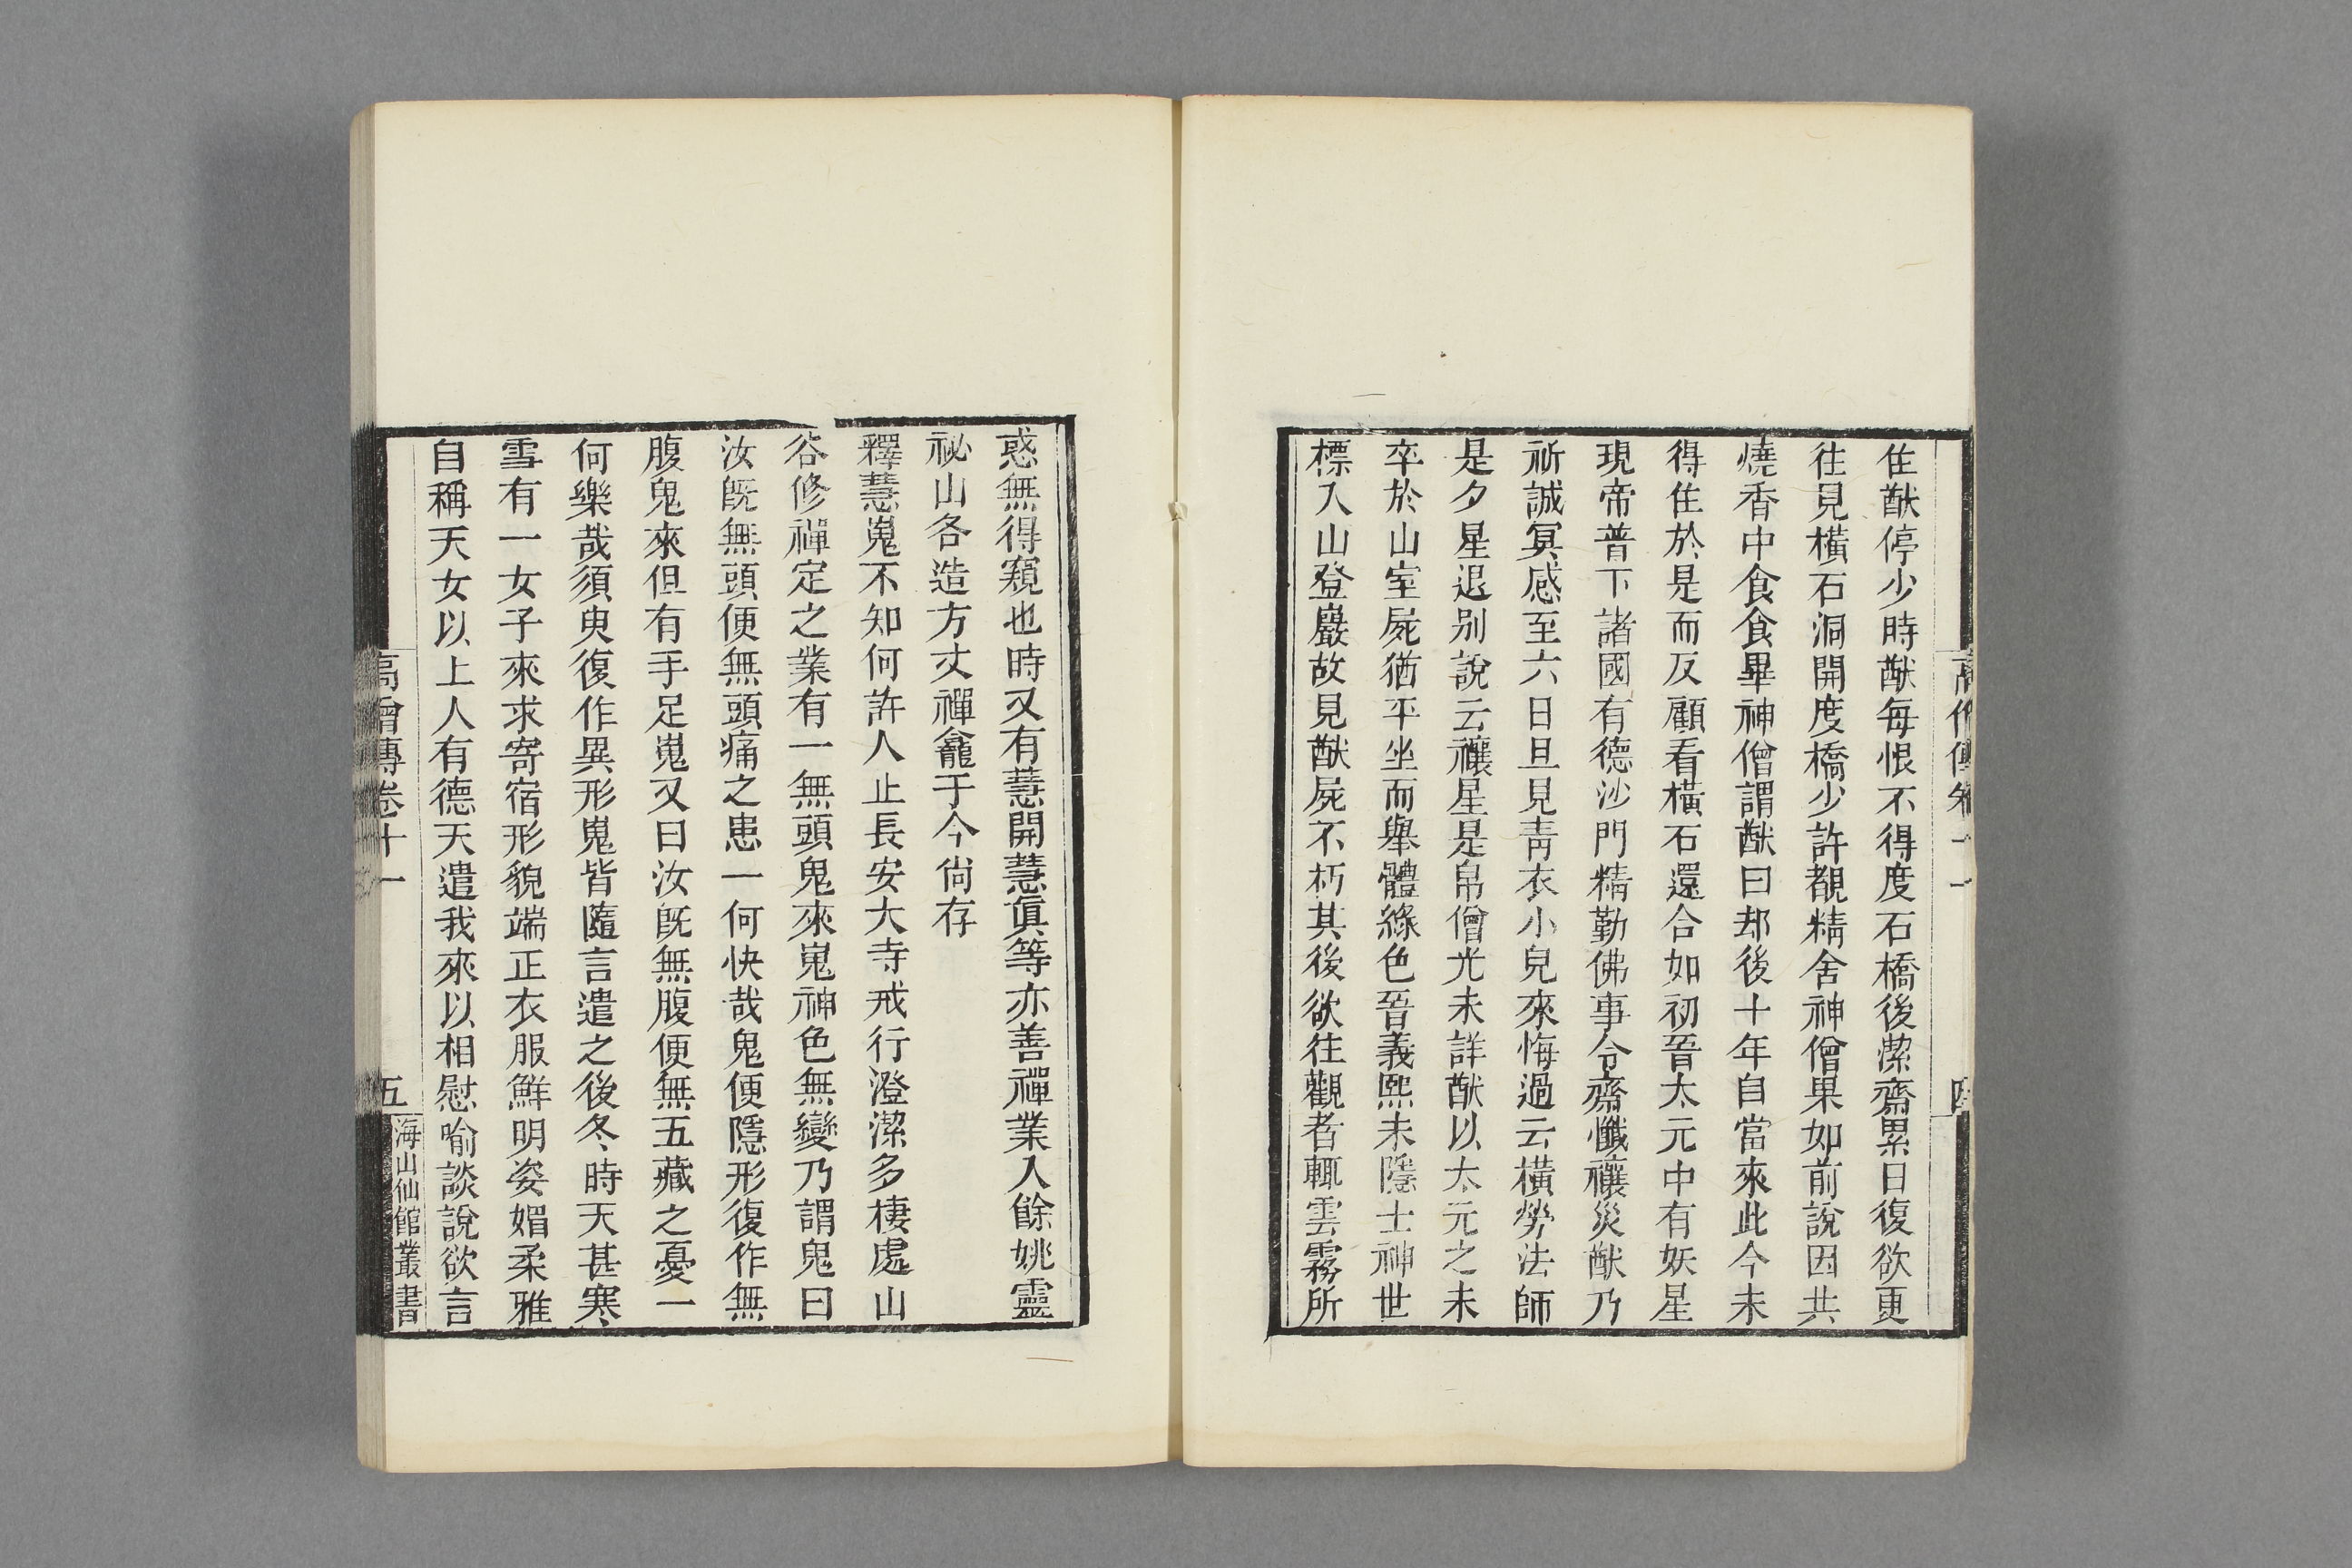 高僧傳卷十一
四
住猷停少時猷每恨不得度石橋後潔齋累日復欲更
往見橫石洞開度橋少許覩精舍神僧果如前說因共
燒香中食食畢神僧謂猷曰却後十年自當來此今未
得住於是而反顧看橫石還合如初晉太元中有妖星
現帝普下諸國有德沙門精勤佛事令齋懺禳災猷乃
祈誠冥感至六日旦見靑衣小兒來悔過云橫勞法師
是夕星退别說云禳星是帛僧光未詳猷以太元之末
卒於山室屍猶平坐而舉體綠色晉義熙末隱士神世
標入山登巖故見猷屍不朽其後欲往觀者輒雲霧所
惑無得窺也時又有慧開慧眞等亦善禪業入餘姚靈
祕山各造方丈禪龕于今尙存
釋慧嵬不知何許人止長安大寺戒行澄潔多棲處山
谷修禪定之業有一無頭鬼來嵬神色無變乃謂鬼曰
汝旣無頭便無頭痛之患一何快哉鬼便隱形復作無
腹鬼來但有手足嵬又曰汝旣無腹便無五藏之憂一
何樂哉須臾復作異形嵬皆隨言遣之後冬時天甚寒
雪有一女子來求寄宿形貌端正衣服鮮明姿媚柔雅
自稱天女以上人有德天遣我來以相慰喻談說欲言
高僧傳卷十一
五
海山仙館叢書